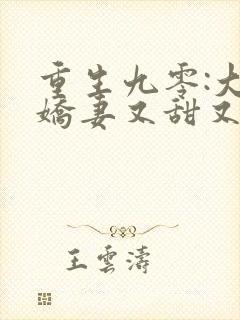 重生九零:大
嬌妻又甜又
王雲濤